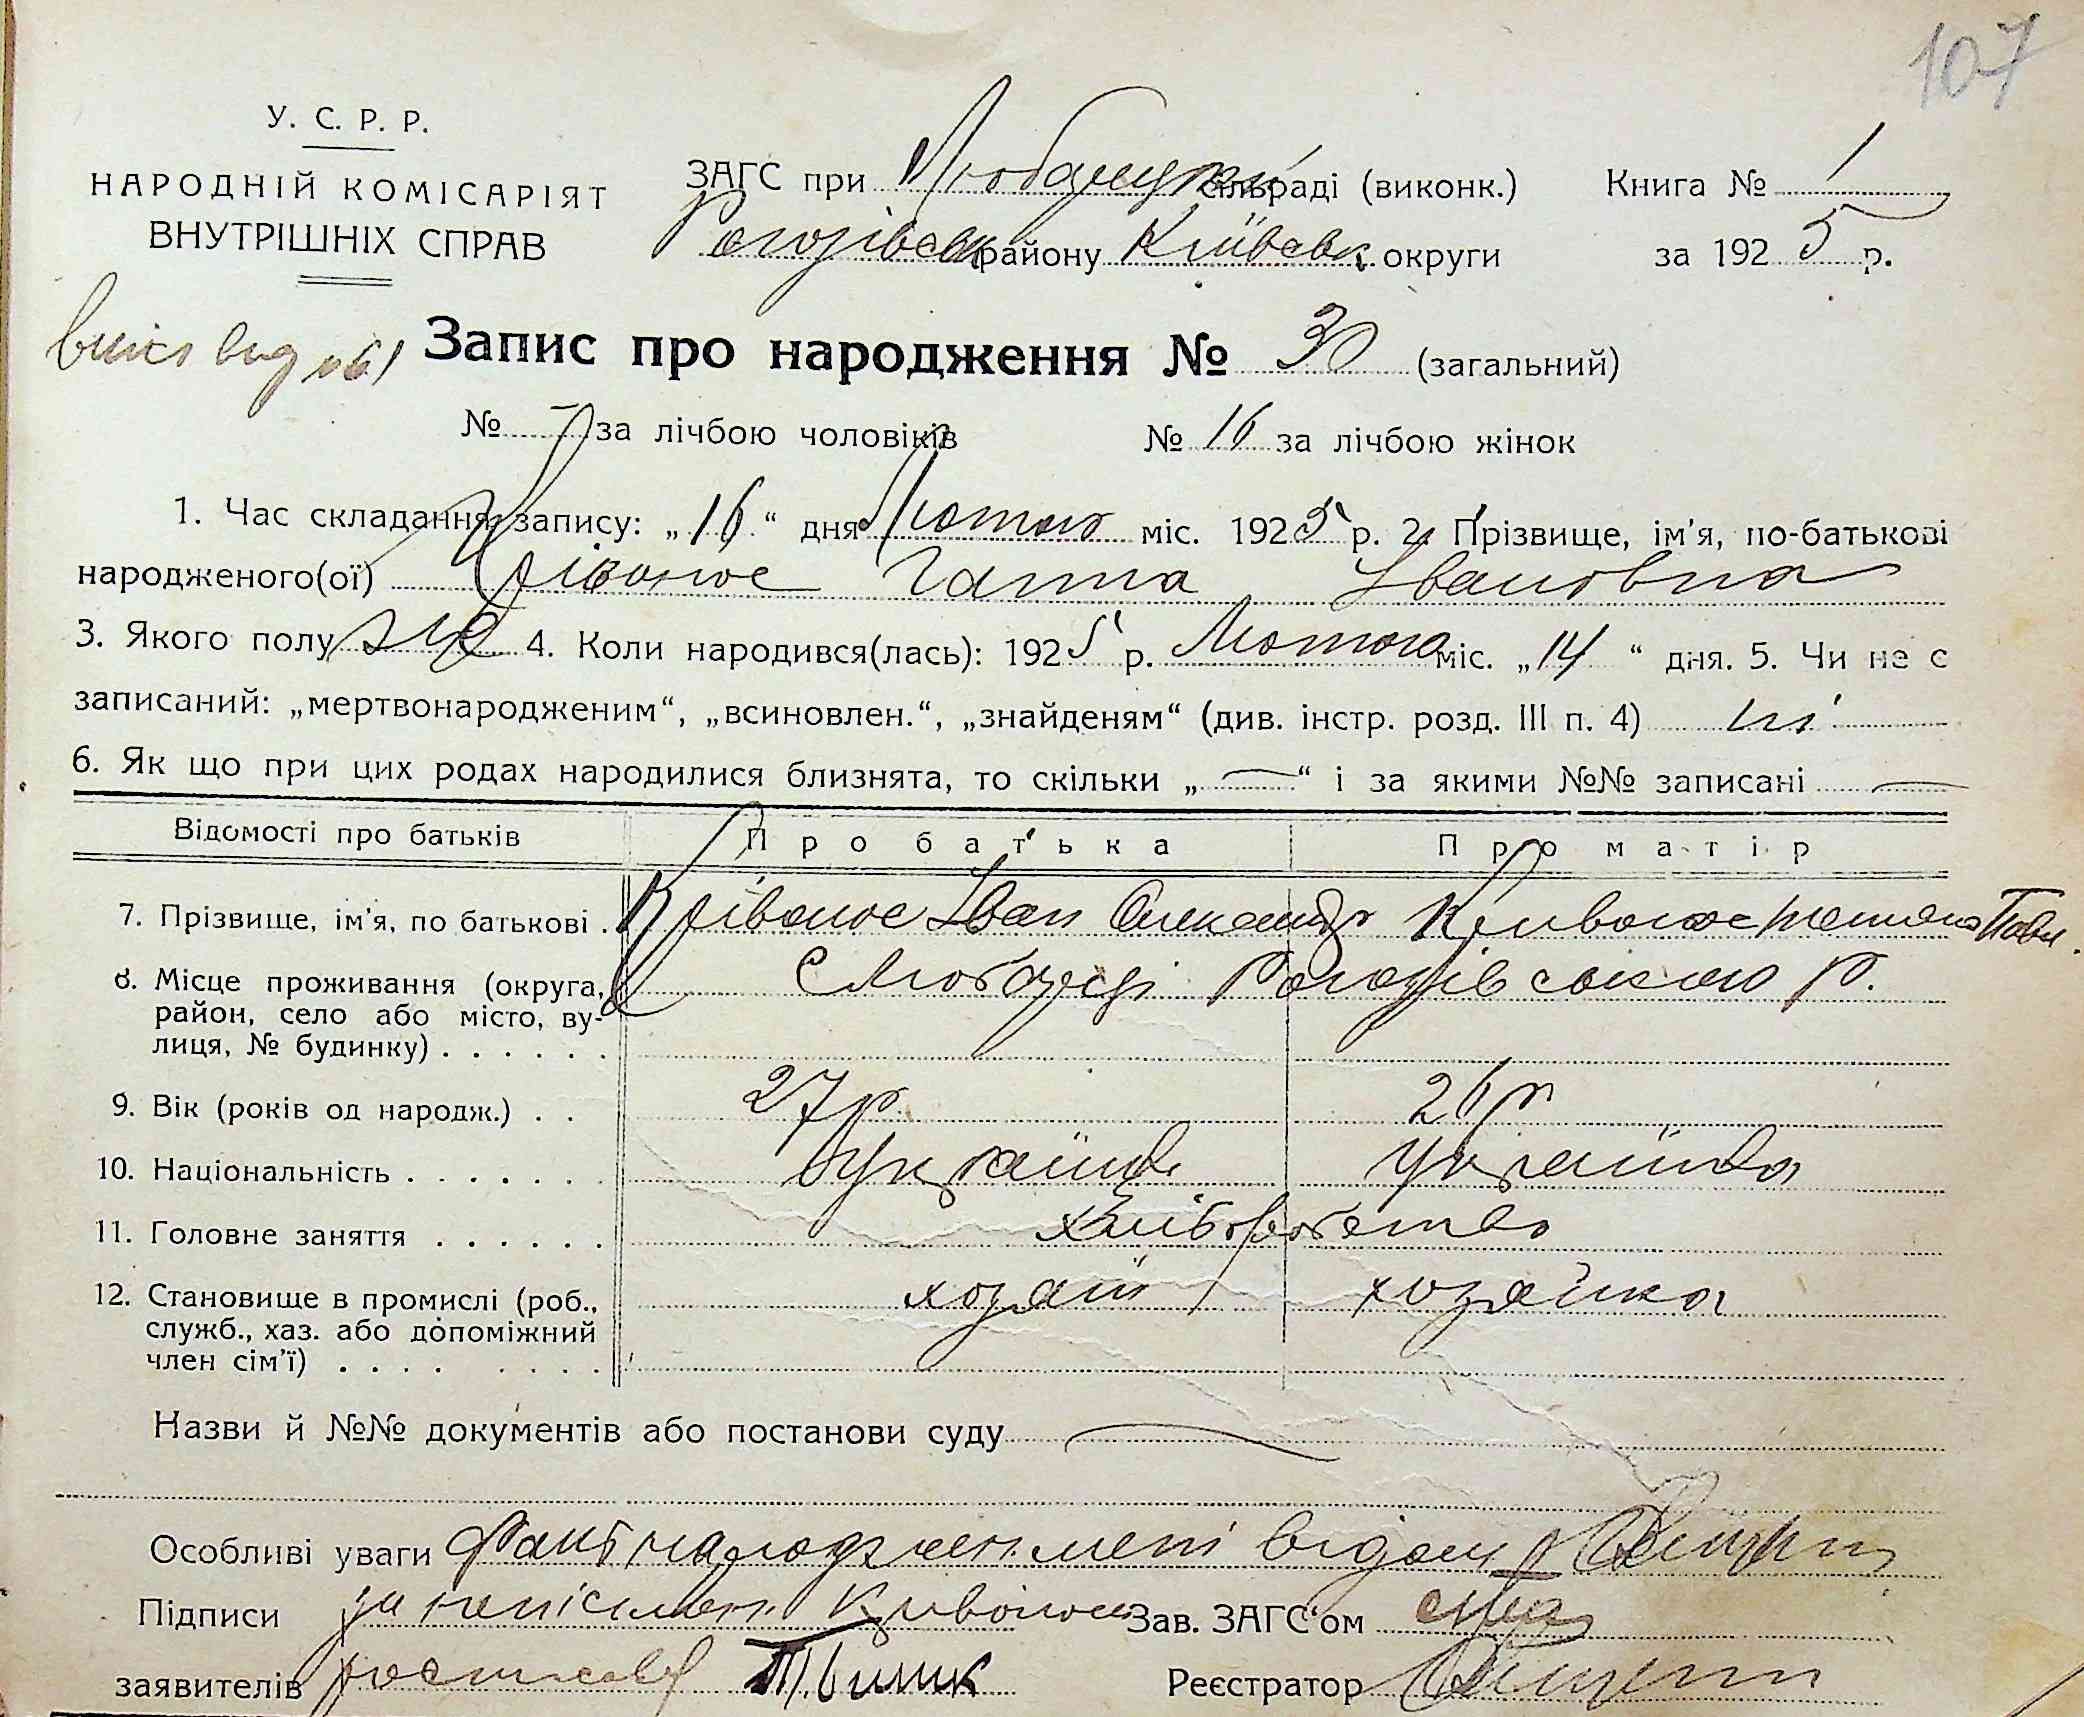 107
У. С. Р. Р.
НАРОДНІЙ КОМІСАРІЯТ
ВНУТРІШНІХ СПРАВ
ЗАГС при сільраді (виконк.) Книга № 1
Рогозівськ району Київськ округи за 1925 р.
Запис про народження № 30 (загальний)
№ — за лічбою чоловіків № 16 за лічбою жінок
1. Час складання запису: „16“ дня Лютого міс. 1925 р. 2. Прізвище, ім'я, по-батькові
народженого(ої) Крівонос Ганна Івановна
3. Якого полу жін 4. Коли народився(лась): 1925 р. Лютого міс. „14“ дня. 5. Чи не є
записаний: „мертвонародженим“, „всиновлен.“, „знайденям“ (див. інстр. розд. III п. 4) ні
6. Як що при цих родах народилися близнята, то скільки „—“ і за якими №№ записані —
Відомості про батьків Про батька Про матір
7. Прізвище, ім'я, по батькові . Крівонос Іван Олександр Кривонос Татяна Павл.
8. Місце проживання (округа, район, село або місто, вулиця, № будинку) . . . . . . с Любарці Рогозівського р.
9. Вік (років од народж.) . . 27 р. 26 р
10. Національність . . . . . . . Українець Українка
11. Головне заняття . . . . . . Хліборобство
12. Становище в промислі (роб., служб., хаз. або допоміжний член сім'ї) . . . . . . . . хозяїн хозяйка
Назви й №№ документів або постанови суду —
Особливі уваги Факт народжен. мені відом
Підписи за неписьмен. Кривонос Зав. ЗАГС'ом
заявителів росписався Реєстратор